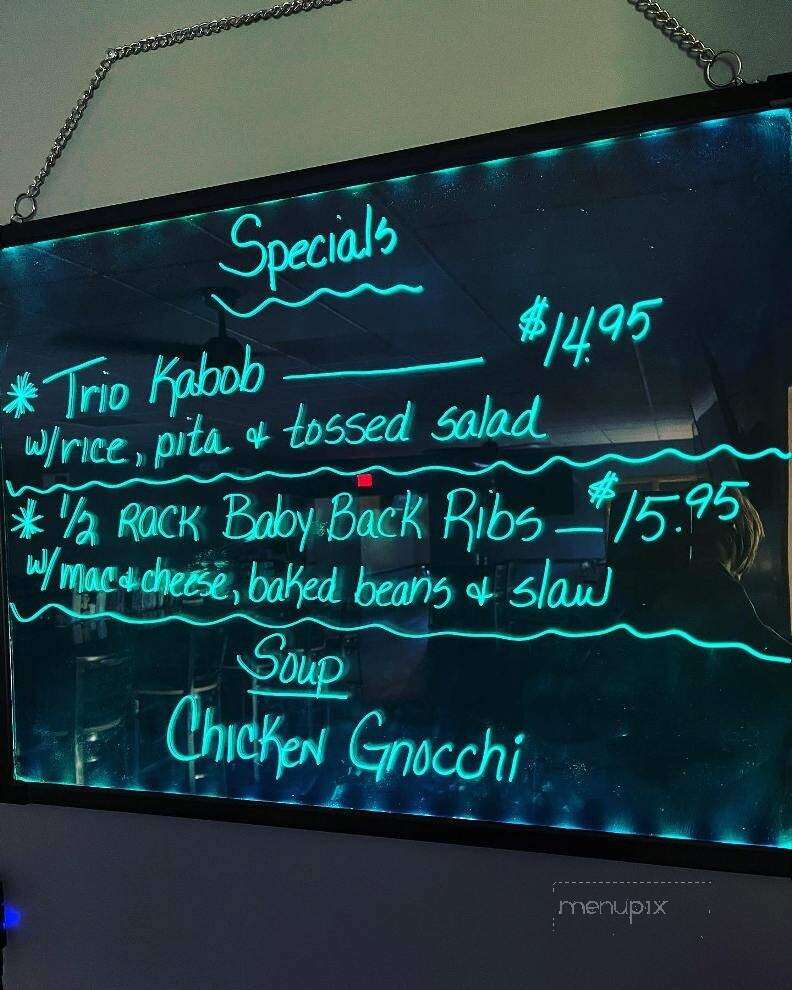 Specials
* Trio Kabob ———— $14.95
w/rice, pita & tossed salad
* 1/2 RACK Baby Back Ribs — $15.95
w/mac & cheese, baked beans & slaw
Soup
Chicken Gnocchi
menupix